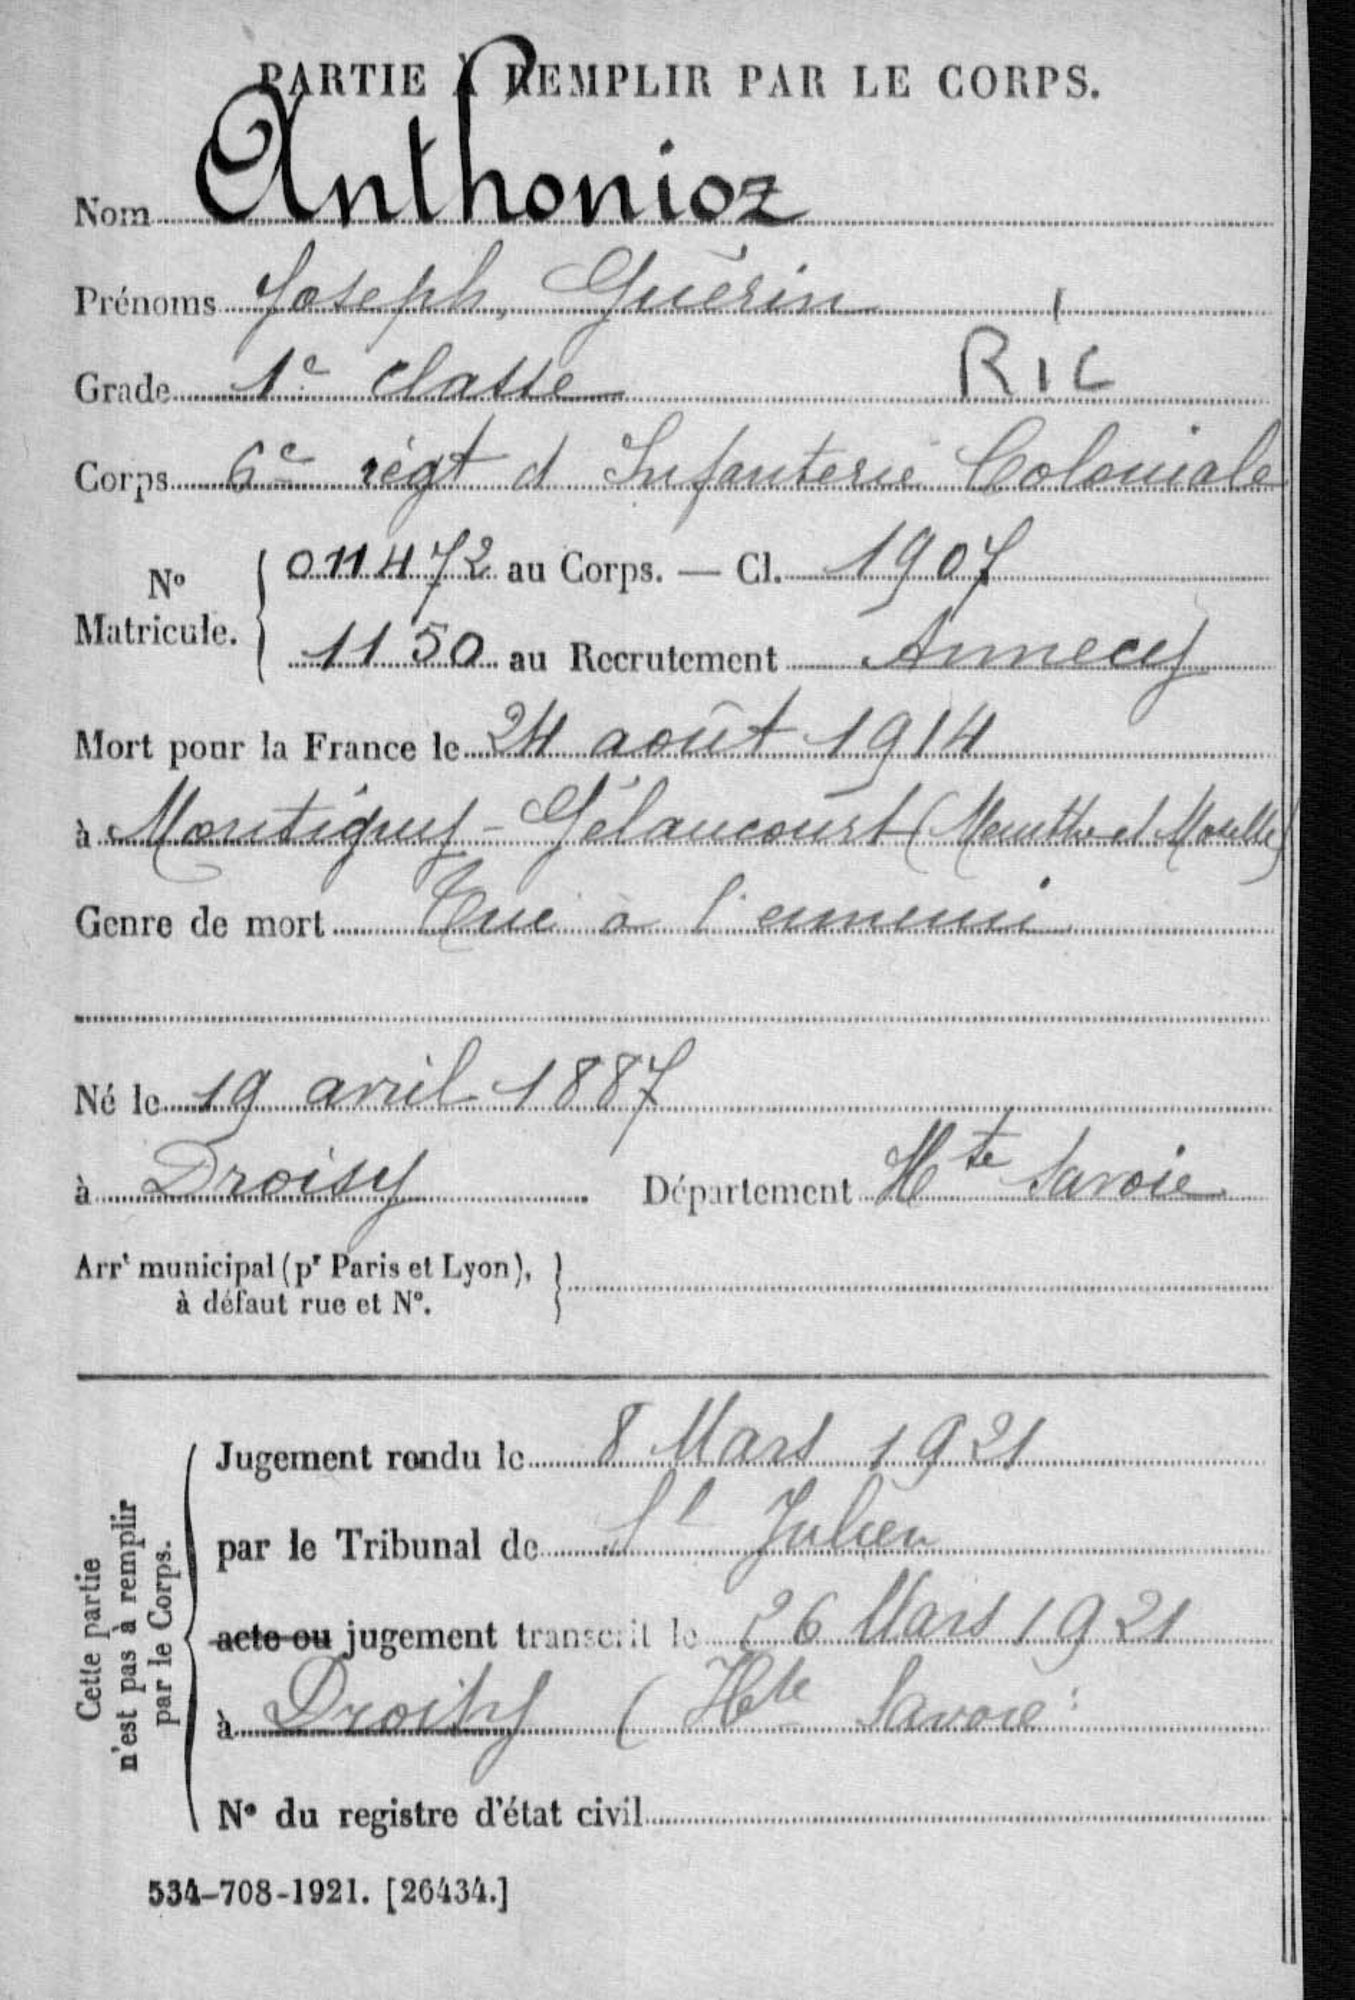 PARTIE À REMPLIR PAR LE CORPS.
Nom Anthonioz
Prénoms Joseph, Guérin
Grade 1e classe RIC
Corps 6e régt d Infanterie Coloniale
No Matricule. { 011472 au Corps. — Cl. 1907
1150 au Recrutement Annecy
Mort pour la France le 24 août 1914
à Montigny-Gélancourt (Meurthe et Moselle)
Genre de mort Tué à l'ennemi
Né le 19 avril 1887
à Droisy Département Hte Savoie
Arrt municipal (pr Paris et Lyon), }
à défaut rue et No.
Cette partie
n'est pas à remplir
par le Corps.
Jugement rendu le 8 Mars 1921
par le Tribunal de St Julien
acte ou jugement transcrit le 26 Mars 1921
à Droisy (Hte Savoie
No du registre d'état civil
534-708-1921. [26434.]